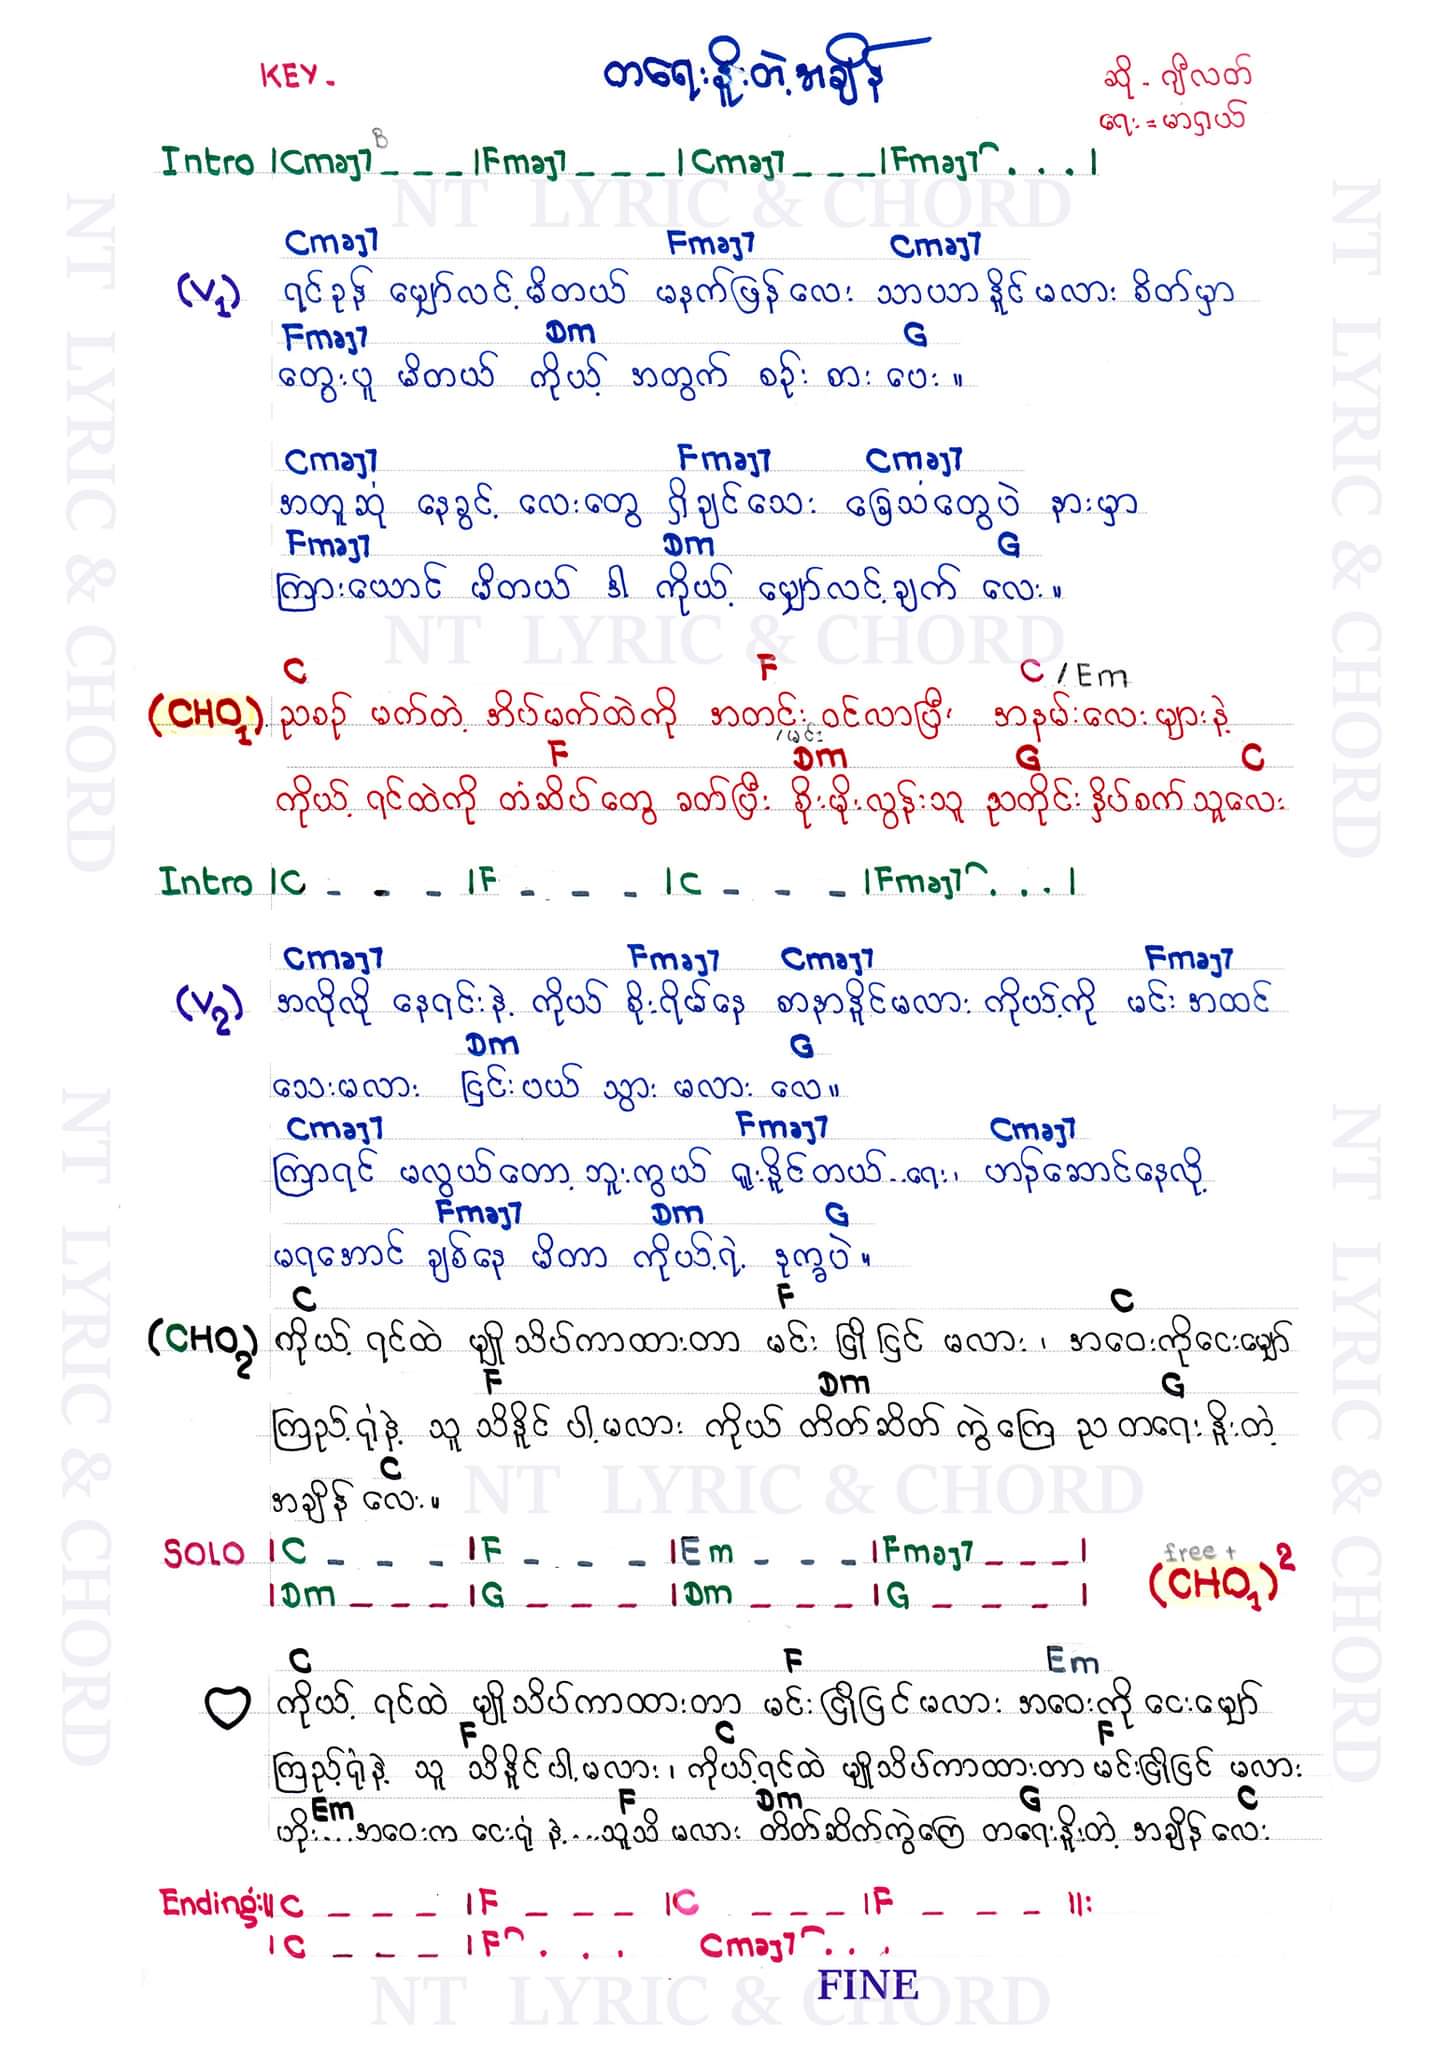 KEY-
တရေးနိုးတဲ့အချိန်
ဆို - ဂျီလတ်
ရေး = မာရှယ်
Intro |Cmaj7 _ _ _ |Fmaj7 _ _ _ |Cmaj7 _ _ _ |Fmaj7 . . . |
B
NT LYRIC & CHORD
Cmaj7 Fmaj7 Cmaj7
(V1) ရင်ခုန် မျှော်လင့်မိတယ် မနက်ဖြန်လေး သာယာနိုင်မလား စိတ်မှာ
Fmaj7 Dm G
တွေးပူ မိတယ် ကိုယ့် အတွက် စဉ်း စား ပေး ။
Cmaj7 Fmaj7 Cmaj7
အတူဆုံ နေခွင့် လေးတွေ ရှိချင်သေး ခြေသံတွေပဲ နားမှာ
Fmaj7 Dm G
ကြားယောင် မိတယ် ဒါ ကိုယ့် မျှော်လင့်ချက် လေး ။
NT LYRIC & CHORD
C F C / Em
(CHO1) ညစဉ် မက်တဲ့ အိပ်မက်ထဲကို အတင်း ဝင်လာပြီး အနမ်းလေးများနဲ့
/မင်း
F Dm G C
ကိုယ့် ရင်ထဲကို တံဆိပ်တွေ ခတ်ပြီး စိုးမိုးလွန်းသူ ညတိုင်း နှိပ်စက်သူလေး
Intro |C - - - |F - - - |C - - - |Fmaj7 . . . |
Cmaj7 Fmaj7 Cmaj7 Fmaj7
(V2) အလိုလို နေရင်းနဲ့ ကိုယ် စိုးရိမ်နေ စာနာနိုင်မလား ကိုယ့်ကို မင်း အထင်
Dm G
သေးမလား ငြင်းပယ် သွား မလား လေ ။
Cmaj7 Fmaj7 Cmaj7
ကြာရင် မလွယ်တော့ဘူးကွယ် ရူးနိုင်တယ်..ရေး၊ ဟန်ဆောင်နေလို့
Fmaj7 Dm G
မရအောင် ချစ်နေ မိတာ ကိုယ့်ရဲ့ ဒုက္ခပဲ ။
C F C
(CHO2) ကိုယ့် ရင်ထဲ မျှိုသိပ်ကာထားတာ မင်း ငြိုငြင် မလား ၊ အဝေးကိုငေးမျှော်
F Dm G
ကြည့်ရုံနဲ့ သူ သိနိုင် ပါ့မလား ကိုယ် တိတ်ဆိတ် ကွဲကြေ ည တရေးနိုးတဲ့
C
အချိန် လေး ။
NT LYRIC & CHORD
SOLO |C _ _ _ |F - - - |Em - - - |Fmaj7 _ _ _ |
|Dm _ _ _ |G _ _ _ |Dm _ _ _ |G _ _ _ |
free +
(CHO1)2
C F Em
♡ ကိုယ့် ရင်ထဲ မျှိုသိပ်ကာထားတာ မင်း ငြိုငြင်မလား အဝေးကို ငေးမျှော်
F C F
ကြည့်ရုံနဲ့ သူ သိနိုင်ပါ့မလား ၊ ကိုယ့်ရင်ထဲ မျှိုသိပ်ကာထားတာ မင်းငြိုငြင် မလား
Em F Dm G C
ဟိုး....အဝေးက ငေးရုံ နဲ့....သူသိ မလား တိတ်ဆိတ်ကွဲကြေ တရေးနိုးတဲ့ အချိန်လေး
Ending:||C _ _ _ |F _ _ _ |C _ _ _ |F _ _ _ ||:
|C _ _ _ |F . . . Cmaj7 . . .
FINE
NT LYRIC & CHORD
NT LYRIC & CHORD
NT LYRIC & CHORD
NT LYRIC & CHORD
NT LYRIC & CHORD